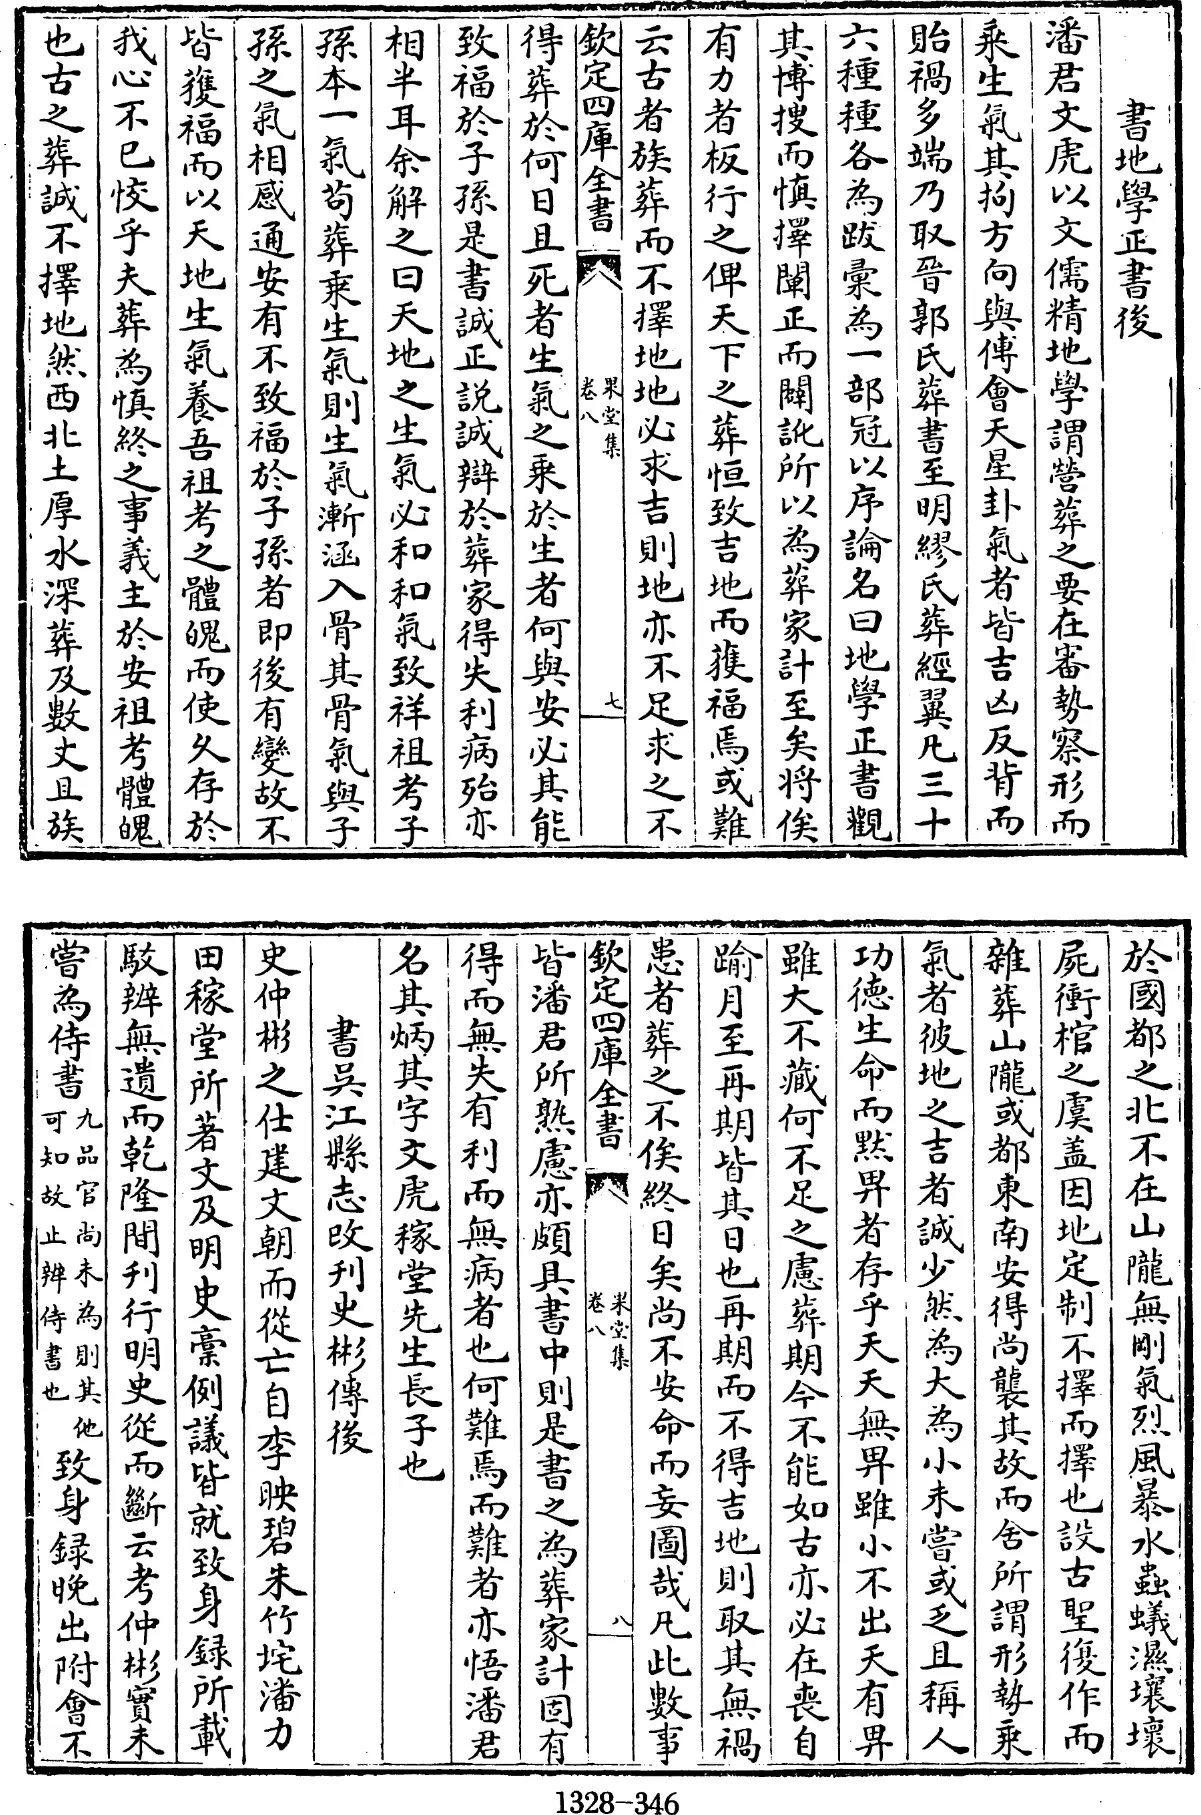 書地學正書後
潘君文虎以文儒精地學謂營葬之要在審勢察形而
乘生氣其拘方向與傅會天星卦氣者皆吉凶反背而
貽禍多端乃取晉郭氏葬書至明繆氏葬經翼凡三十
六種種各為跋彙為一部冠以序論名曰地學正書觀
其博搜而慎擇闡正而闢訛所以為葬家計至矣將俟
有力者板行之俾天下之葬恒致吉地而獲福焉或難
云古者族葬而不擇地地必求吉則地亦不足求之不
欽定四庫全書
果堂集
卷八
七
得葬於何日且死者生氣之乘於生者何與安必其能
致福於子孫是書誠正說誠辯於葬家得失利病殆亦
相半耳余解之曰天地之生氣必和和氣致祥祖考子
孫本一氣苟葬乘生氣則生氣漸涵入骨其骨氣與子
孫之氣相感通安有不致福於子孫者即後有變故不
皆獲福而以天地生氣養吾祖考之體魄而使久存於
我心不已恔乎夫葬為慎終之事義主於安祖考體魄
也古之葬誠不擇地然西北土厚水深葬及數丈且族
於國都之北不在山隴無剛氣烈風暴水蟲蟻濕壤壞
屍衝棺之虞盖因地定制不擇而擇也設古聖復作而
雜葬山隴或都東南安得尚襲其故而舍所謂形勢乘
氣者彼地之吉者誠少然為大為小未嘗或乏且稱人
功德生命而黙畀者存乎天天無畀雖小不出天有畀
雖大不藏何不足之慮葬期今不能如古亦必在喪自
踰月至再期皆其日也再期而不得吉地則取其無禍
患者葬之不俟終日矣尚不安命而妄圖哉凡此數事
欽定四庫全書
果堂集
卷八
八
皆潘君所熟慮亦頗具書中則是書之為葬家計固有
得而無失有利而無病者也何難焉而難者亦悟潘君
名其炳其字文虎稼堂先生長子也
書吳江縣志改刊史彬傳後
史仲彬之仕建文朝而從亡自李映碧朱竹垞潘力
田稼堂所著文及明史稾例議皆就致身録所載
駁辨無遺而乾隆間刋行明史從而斷云考仲彬實未
嘗為侍書九品官尚未為則其他可知故止辨侍書也致身録晚出附會不
1328-346